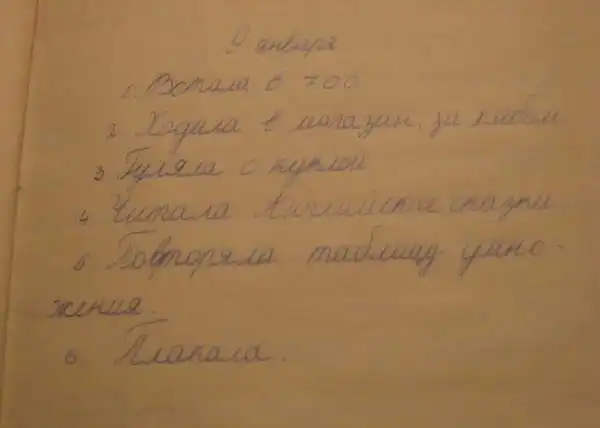 9 января
1. Встала в 7 00
2 Ходила в магазин за хлебом
3 Гуляла с куклой
4 Читала Английские сказки
5 Повторяла таблицу умно-
жения.
6 Плакала.